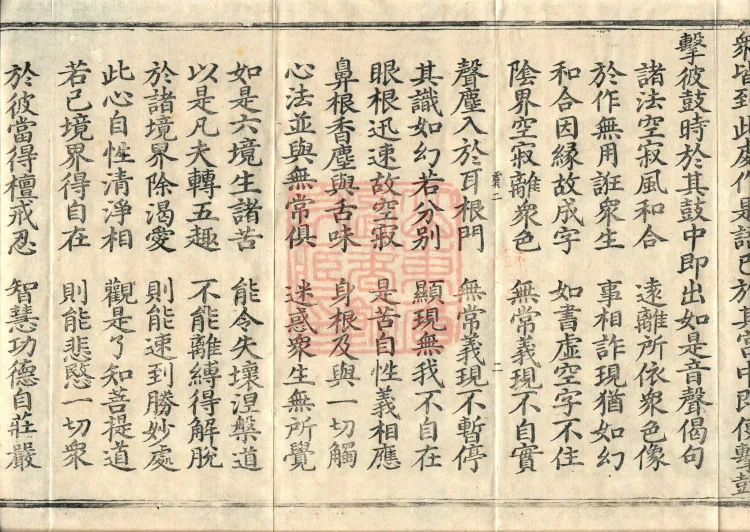 衆皆到此處作是語已於其宮中即便擊鼓
擊彼鼓時於其鼓中即出如是音聲偈句
諸法空寂風和合 遠離所依衆色像
於作無用誑衆生 事相詐現猶如幻
和合因緣故成字 如書虛空字不住
陰界空寂離衆色 無常義現不自實
聲塵入於耳根門 無常義現不暫停
其識如幻若分別 顯現無我不自在
眼根迅速故空寂 是苦自性義相應
鼻根香塵與舌味 身根及與一切觸
心法並與無常俱 迷惑衆生無所覺
如是六境生諸苦 能令失壞涅槃道
以是凡夫轉五趣 不能離縛得解脫
於諸境界除渴愛 則能速到勝妙處
此心自性清淨相 觀是了知菩提道
若已境界得自在 則能悲愍一切衆
於彼當得檀戒忍 智慧功德自莊嚴